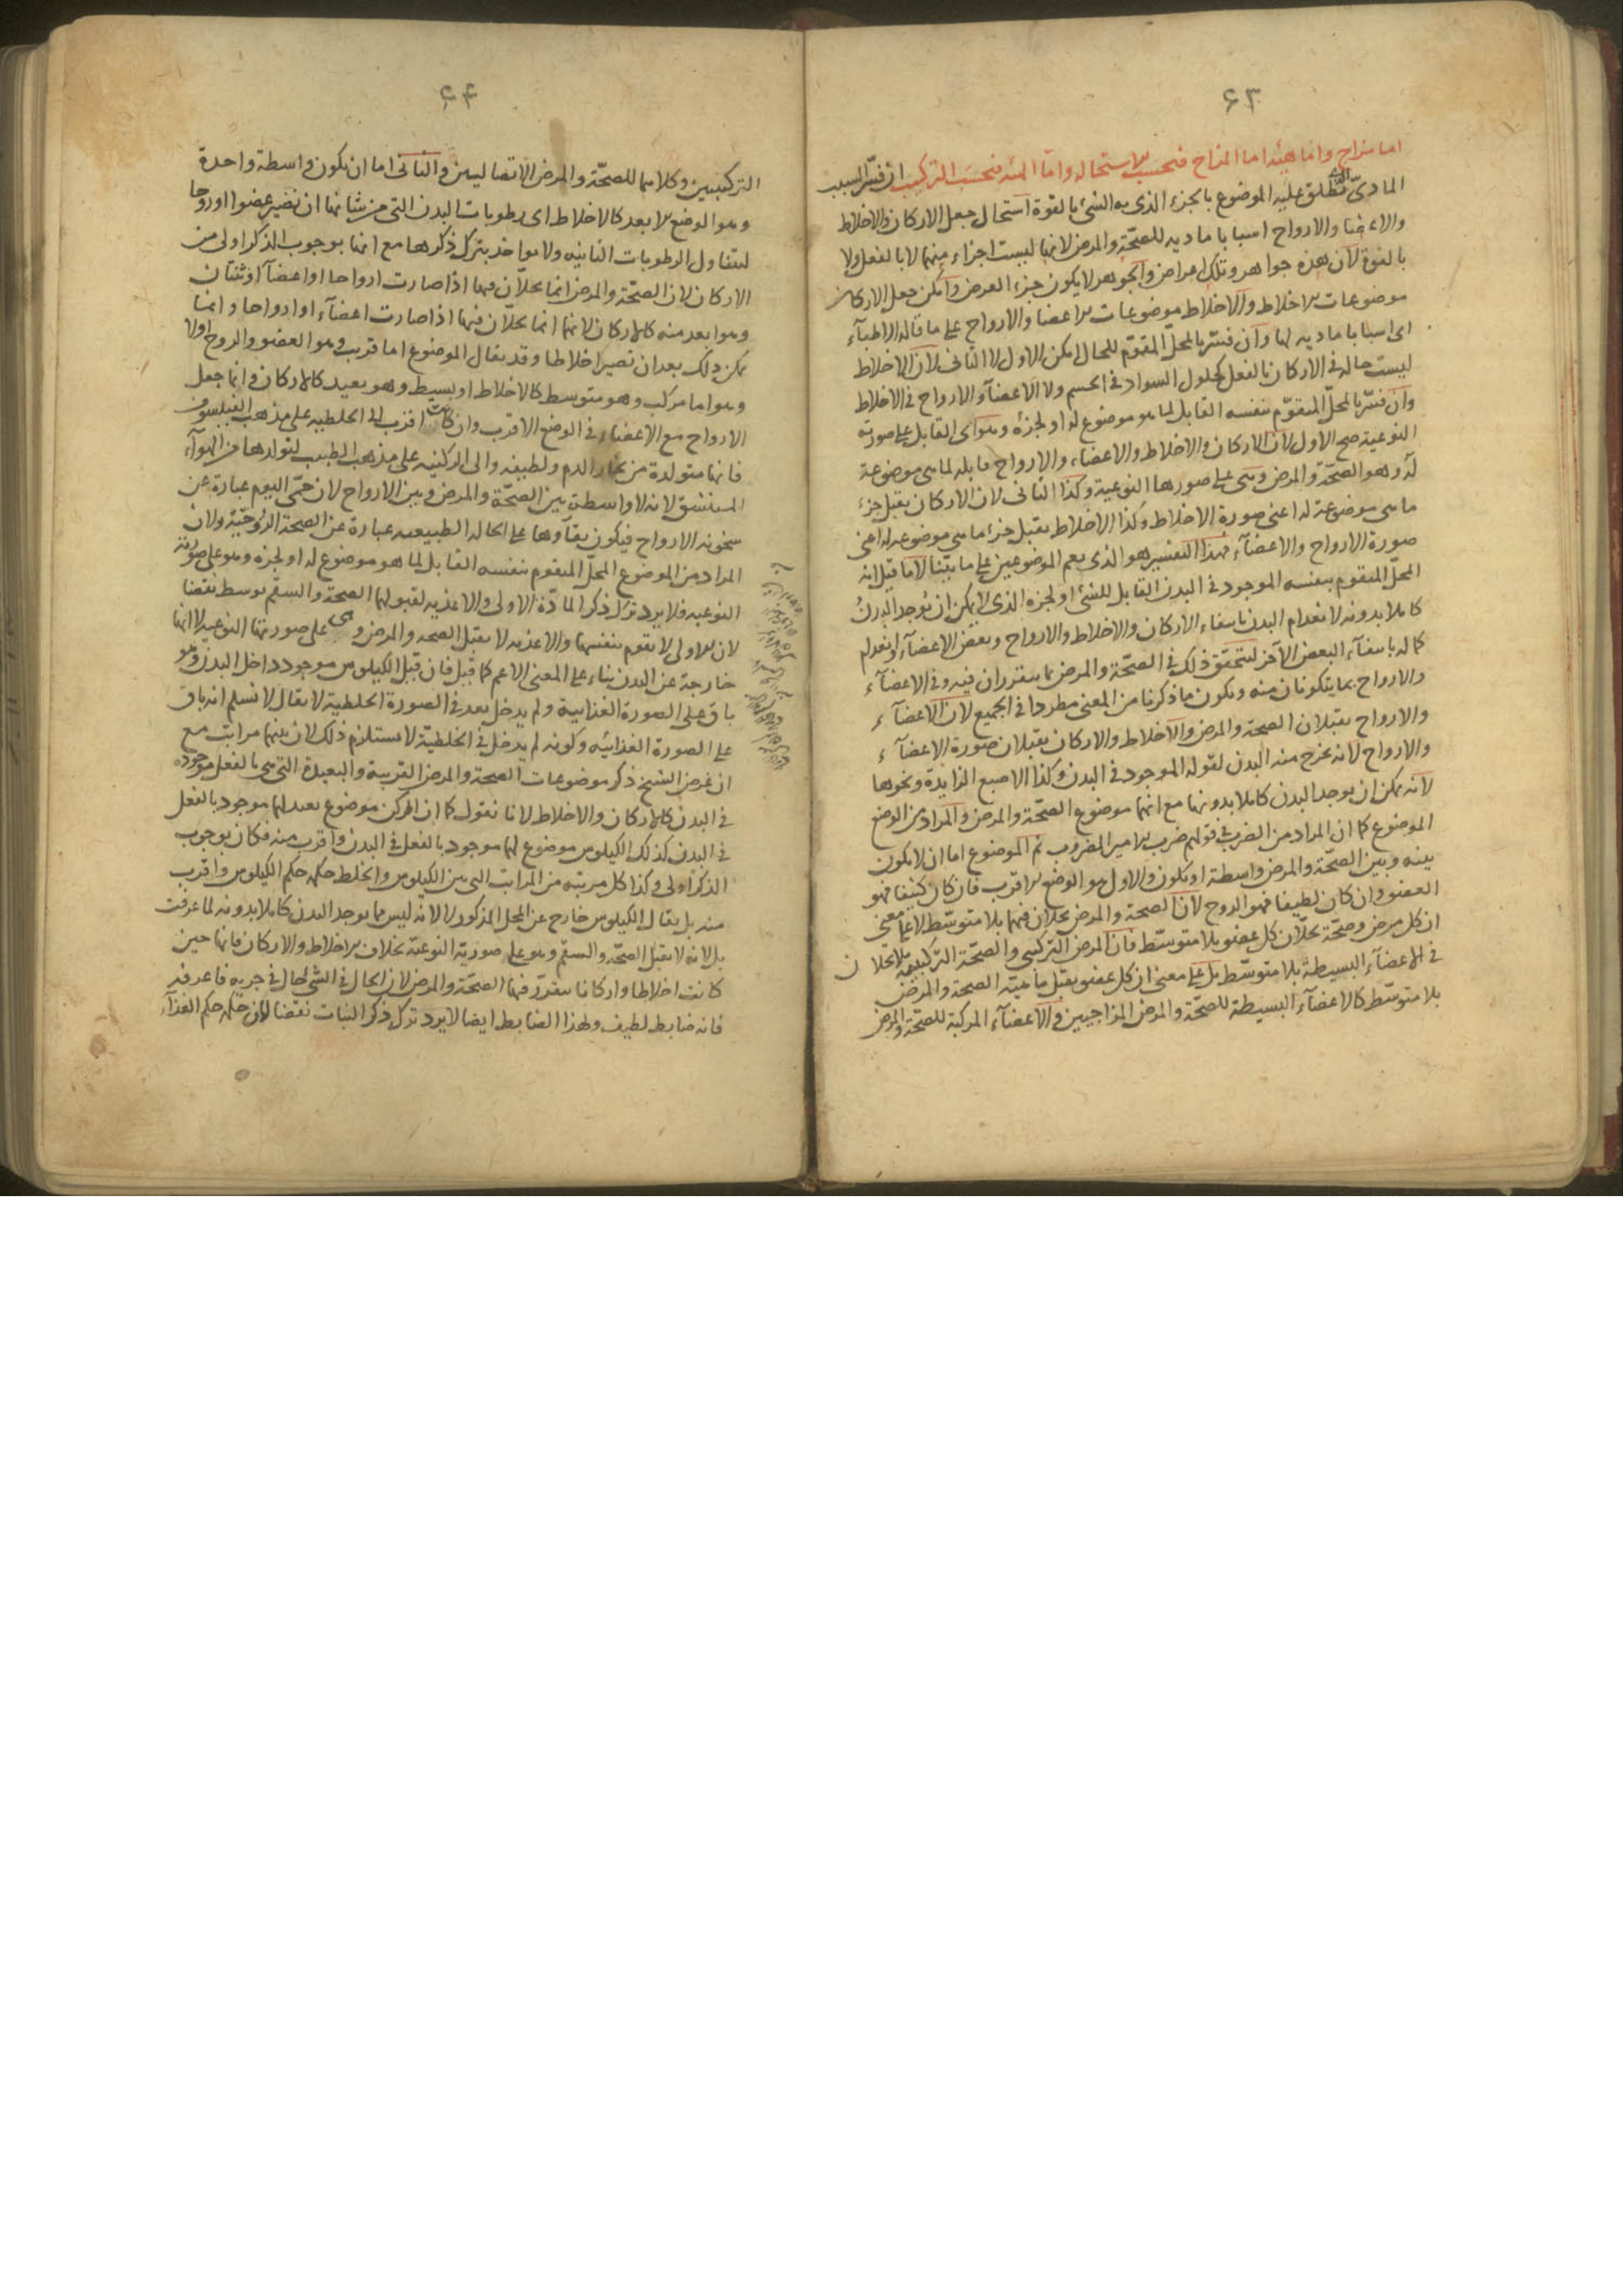 ٦٣
اما مزاج واما هيئة اما المزاج فبحسب الاستحالة واما الهيئة فبحسب التركيب ان فسّر السبب
المادىّ الذى تطلق عليه الموضوع بالجزء الذى به الشئ بالقوة استحال جعل الاركان والاخلاط
والاعضا والارواح اسبابا مادية للصحّة والمرض لانها ليست اجزاء منهما لا بالفعل ولا
بالقوة لان هذه جواهر وتلك اعراض والجوهر لا يكون جزء العرض وامكن جعل الاركان
موضوعات الاخلاط والاخلاط موضوعات الاعضا والارواح على ما قاله الاطباء
اى اسبابا مادية لها وان فسّر بالمحلّ المقوّم للحال امكن الاول لا الثانى لان الاخلاط
ليست حالة فى الاركان بالفعل كحلول السواد فى الجسم ولا الاعضاء والارواح فى الاخلاط
وان فسّر بالمحلّ المتقوّم بنفسه القابل لما هو موضوع له او لجزئه وهو اى القابل على صورته
النوعية صح الاول لان الاركان والاخلاط والاعضاء والارواح قابلة لما هى موضوعة
له وهو الصحّة والمرض وهى على صورها النوعية وكذا الثانى لان الاركان يقبل جزء
ما هى موضوعة له اعنى صورة الاخلاط وكذا الاخلاط يقبل جزء ما هى موضوعة له اعنى
صورة الارواح والاعضاء فهذا التفسير هو الذى يعم الموضوعين على ما بيّنا لا ما قيل انه
المحلّ المتقوم بنفسه الموجود فى البدن القابل للشئ او لجزءه الذى لا يمكن ان يوجد البدن
كاملا بدونه لانعدام البدن بانتفاء الاركان والاخلاط والارواح وبعض الاعضاء وانعدام
كماله بانتفاء البعض الآخر ليتحقق ذلك فى الصحّة والمرض بما يتقرران فيه وفى الاعضاء
والارواح بما يتكونان منه ويكون ما ذكرنا من المعنى مطردا فى الجميع لان الاعضاء
والارواح يقبلان الصحة والمرض والاخلاط والاركان يقبلان صورة الاعضاء
والارواح لانه يخرج منه البدن لقوله الموجود فى البدن وكذا الاصبع الزايدة ونحوها
لانه يمكن ان يوجد البدن كاملا بدونها مع انها موضوع الصحّة والمرض والمراد من الوضع
الموضوع كما ان المراد من الضرب فى قولهم ضرب الامير المضروب ثم الموضوع اما ان لا يكون
بينه وبين الصحّة والمرض واسطة او يكون والاول هو الوضع الاقرب فان كان كثيفا فهو
العضو وان كان لطيفا فهو الروح لان الصحة والمرض يحلان فيهما بلا متوسّط لا على معنى
ان كل مرض وصحّة يحلّان كل عضو بلا متوسّط فان المرض التركيبى والصحّة التركيبية لا يحلان
فى الاعضاء البسيطة بلا متوسّط بل على معنى ان كل عضو يقبل ماهيّة الصحة والمرض
بلا متوسّط كالاعضاء البسيطة للصحّة والمرض المزاجيين والاعضاء المركبة للصحّة والمرض
٦٤
التركيبيين وكلاهما للصحّة والمرض الاتصاليين والثانى اما ان يكون واسطة واحدة
وهو الوضع الابعد كالاخلاط اى رطوبات البدن التى من شانها ان تصير عضوا او روحا
ليتناول الرطوبات الثانية ولا يواخذ بترك ذكرها مع انها بوجوب الذكر اولى من
الاركان لان الصحّة والمرض انما يحلّان فيها اذا صارت ارواحا او اعضاء او ثنتان
وهو ابعد منه كالاركان لانهما انما يحلّان فيها اذا صارت اعضاء او ارواحا وانما
يمكن ذلك بعد ان تصير اخلاطا وقد يقال الموضوع اما قريب وهو العضو والروح اولا
وهو اما مركب وهو متوسط كالاخلاط او بسيط وهو بعيد كالاركان وانما جعل
الارواح مع الاعضاء فى الوضع الاقرب وان كانت اقرب الى الخلطيه على مذهب الفيلسوف
فانها متولدة من بخار الدم ولطيفه والى الركنيه على مذهب الطبيب لتولدها من الهواء
المستنشق لانه لا واسطة بين الصحّة والمرض وبين الارواح لان حمّى اليوم عبارة عن
سخونة الارواح فيكون بقاؤها على الحالة الطبيعية عبارة عن الصحة الروحيّة ولان
المراد من الموضوع المحلّ المتقوم بنفسه القابل لما هو موضوع له او لجزءه وهو على صورته
النوعيه فلا يرد ترك ذكر المادّة الاولى والاغذيه لقبولها الصحة والسقم بوسط نقضا
لان الاولى لا تقوم بنفسها والاغذيه لا يقبل الصحه والمرض وهى على صورتها النوعيه لا انها
خارجة عن البدن بناء على المعنى الاعم كما قيل فان قيل الكيلوس موجود داخل البدن وهو
باق على الصورة الغذاييه ولم يدخل بعد فى الصورة الخلطيّه لا يقال لا نسلم انه باق
على الصورة الغذائيه وكونه لم يدخل فى الخلطيّة لا يستلزم ذلك لان بينهما مراتب مع
ان غرض الشيخ ذكر موضوعات الصحة والمرض القريبة والبعيدة التى هى بالفعل موجودة
فى البدن كالاركان والاخلاط لانا نقول كما ان الركن موضوع بعيد لهما موجود بالفعل
فى البدن كذلك الكيلوس موضوع لهما موجود بالفعل فى البدن واقرب منه فكان بوجوب
الذكر اولى وكذا كل مرتبه من المراتب التى بين الكيلوس والخلط حكمه حكم الكيلوس واقرب
منه بل يقال الكيلوس خارج عن المحل المذكور لا لانه ليس مما يوجد البدن كاملا بدونه لما عرفت
بل لانه لا يقبل الصحّة والسقم وهو على صورته النوعيّة بخلاف الاخلاط والاركان فانها حين
كانت اخلاطا واركانا يتقرّر فيها الصحّة والمرض لان الحال فى الشئ حال فى جزءه فاعرفه
فانه ضابط لطيف ولهذا الضابط ايضا لا يرد ترك ذكر النبات نقضا لان حكمه حكم الغذاء